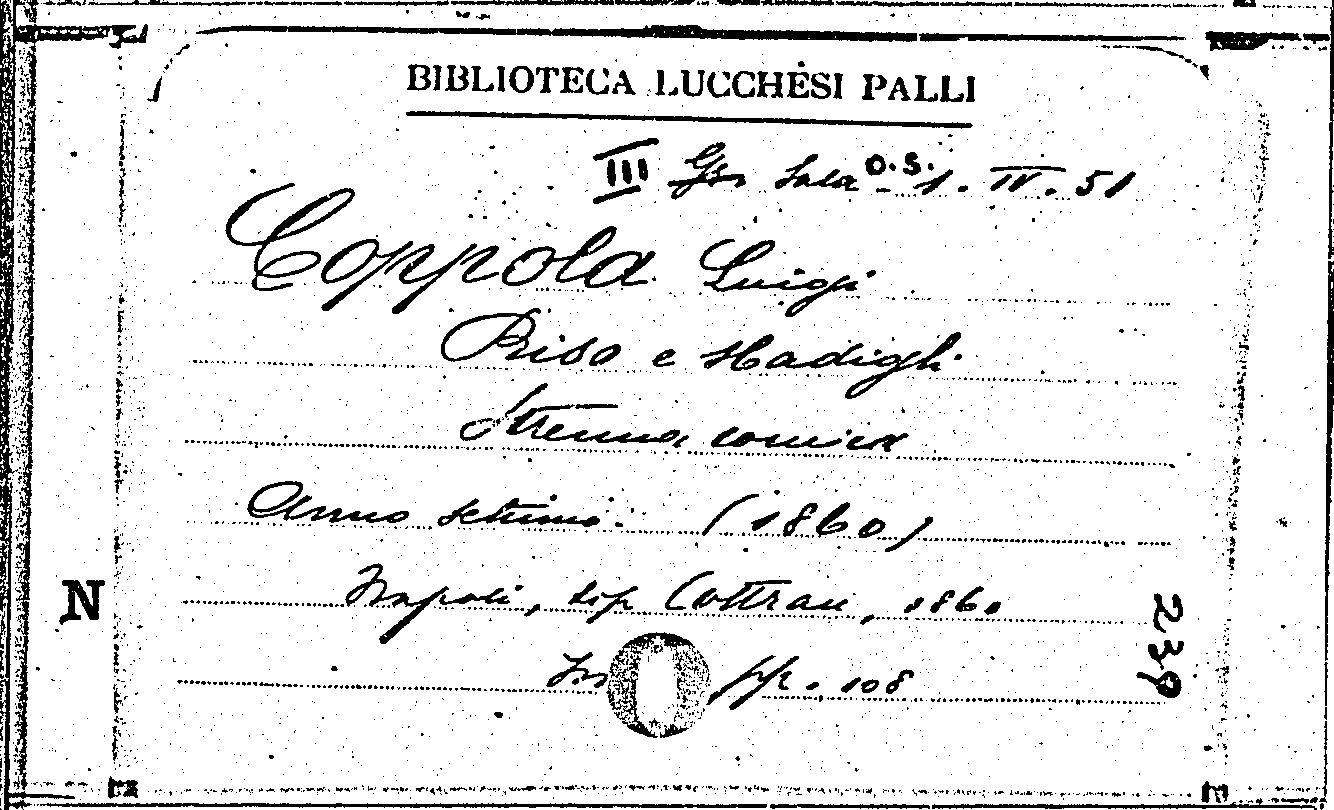 BIBLIOTECA LUCCHESI PALLI
III Gra Sala O.S. 1. IV. 51
Coppola Luigi
Riso e sbadigli
Strenna comica
Anno settimo. (1860)
Napoli, tip Cottrau, 1860
N
In pp. 108
239